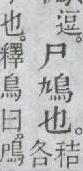 逗。尸鳩也。秸
各
也。釋鳥曰。鳲